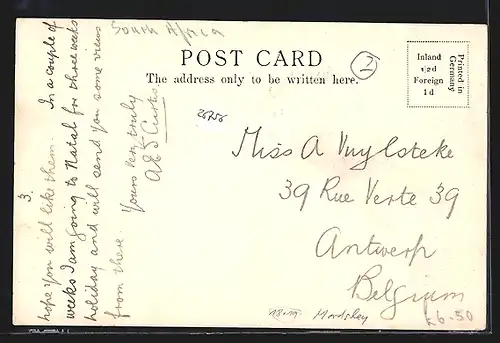 South Africa
POST CARD
The address only to be written here.
7
Inland
1/2d
Foreign
1d
Printed in
Germany
26756
3.
hope you will like them. In a couple of
weeks I am going to Natal for three weeks
holiday and will send you some views
from there. Yours very truly
A E J Curtis.
Miss A Vuylsteke
39 Rue Verte 39
Antwerp
Belgium
£6-50